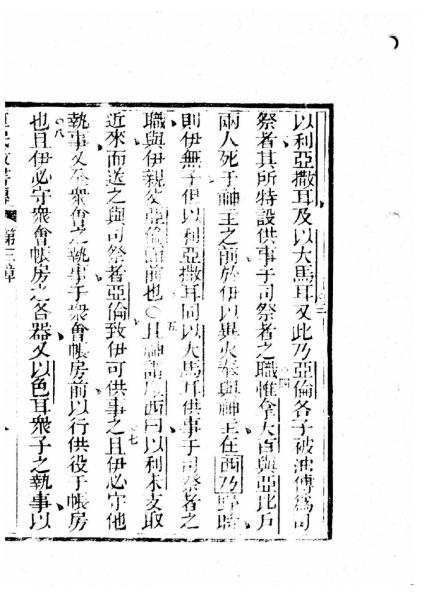 以利亞撒耳及以大馬耳又此乃亞倫各子被油傅爲司
祭者其所特設供事于司祭者之職惟拿大百與亞比戶
兩人死于神主之前於伊以異火奉與神主在西乃野時
則伊無子但以利亞撒耳同以大馬耳供事于司祭者之
職與伊親父亞倫面前也○且神謂摩西曰以利未支取
近來而送之與司祭者亞倫致伊可供事之且伊必守他
執事又及衆會之執事于衆會帳房前以行供役于帳房
也且伊必守衆會帳房之各器又以色耳衆子之執事以
第三章